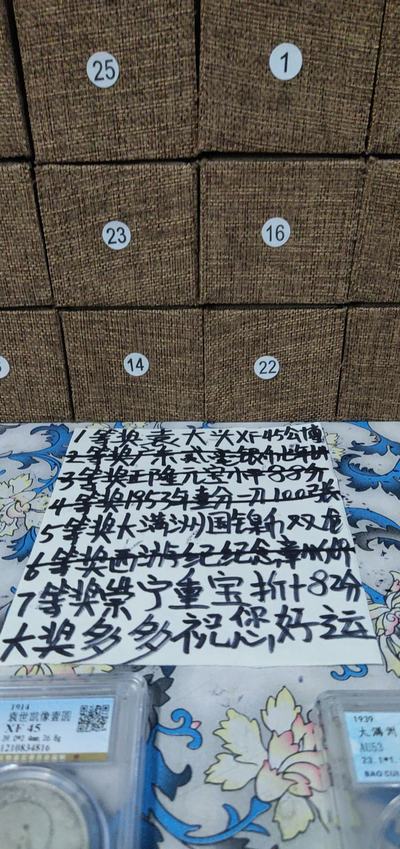 25
1
23
16
14
22
1等奖袁大头XF45公博
2等奖
3等奖正隆元宝小平88分
4等奖1953年壹分一刀100张
5等奖大满洲国镍币双龙
6等奖西游记纪念章
7等奖崇宁重宝折十82分
大奖多多祝您好运
1914
袁世凯像壹圆
XF 45
39.0*2.4mm 26.8g
1210834816
1939
大满洲
AU53
23.1*1.
BAO CUI